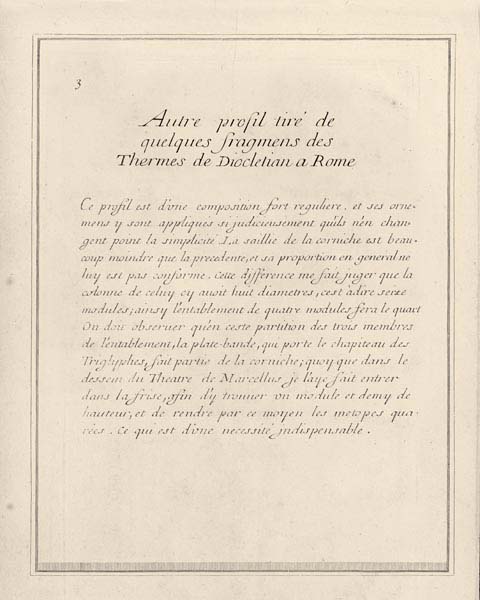 3
Autre profil tiré de
quelques fragmens des
Thermes de Diocletian a Rome
Ce profil est d'vne composition fort reguliere. et ses orne-
mens y sont appliqués si judicieusement qu'ils n'en chan-
gent point la simplicité. La saillie de la corniche est beau-
coup moindre que la precedente, et sa proportion en general ne
luy est pas conforme. Cette difference me fait juger que la
colonne de celuy cy auoit huit diametres, c'est à dire seize
modules; ainsy l'entablement de quatre modules sera le quart
On doit observer qu'en ceste partition des trois membres
de l'entablement, la plate-bande, qui porte le chapiteau des
Triglyphes, fait partie de la corniche; quoy que dans le
dessein du Theatre de Marcellus je l'aye fait entrer
dans la frise, afin d'y trouuer vn module et demy de
hauteur, et de rendre par ce moyen les metopes qua-
rées. Ce qui est d'vne necessité jndispensable.